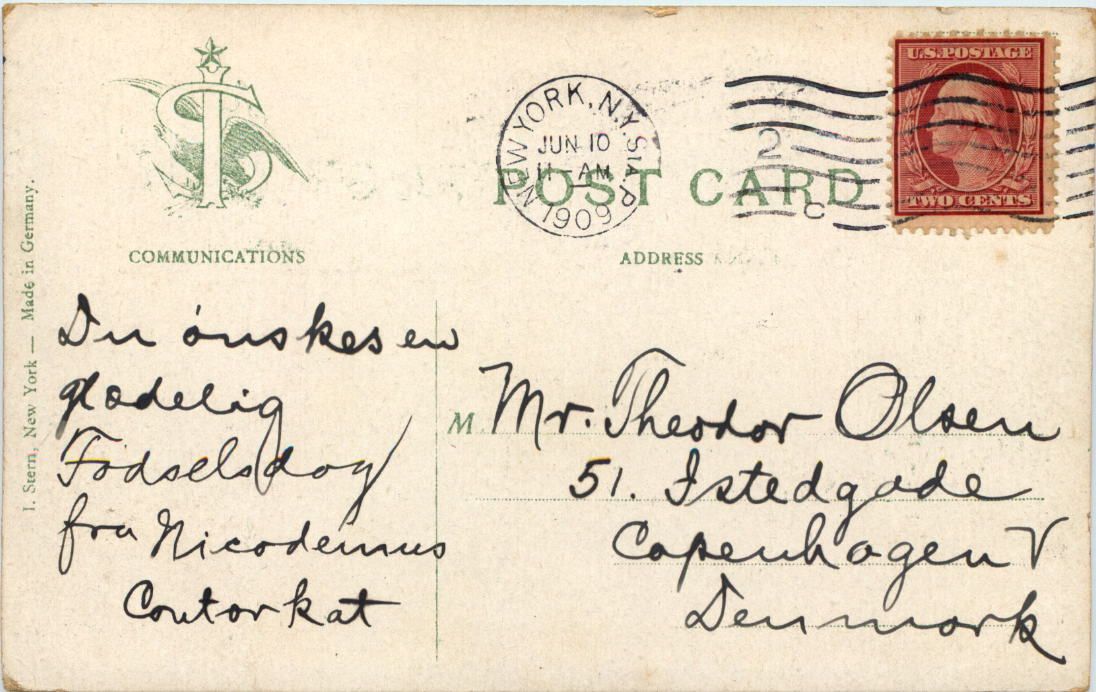 U.S. POSTAGE
TWO CENTS
NEW YORK, N.Y. STA. P
JUN 10
11-AM
1909
2
C
POST CARD
COMMUNICATIONS
ADDRESS
I. Stern, New York — Made in Germany.
Du ónskes en
glædelig
Fódselsdag
fra Nicodemus
Contorkat
M Mr. Theodor Olsen
51. Istedgade
Copenhagen V
Denmark